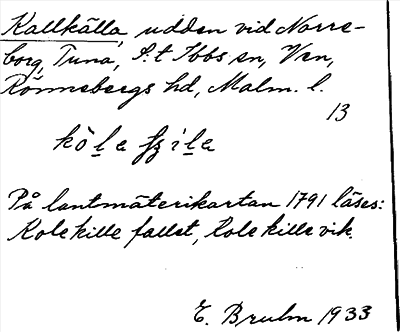 Kallkälla, udden vid Norre-
borg, Tuna, S:t Ibbs sn, Ven,
Rönnebergs hd, Malm. l.
13
På lantmäterikartan 1791 läses:
Kolekille fallet, Kolekille vik.
E. Bruhn 1933